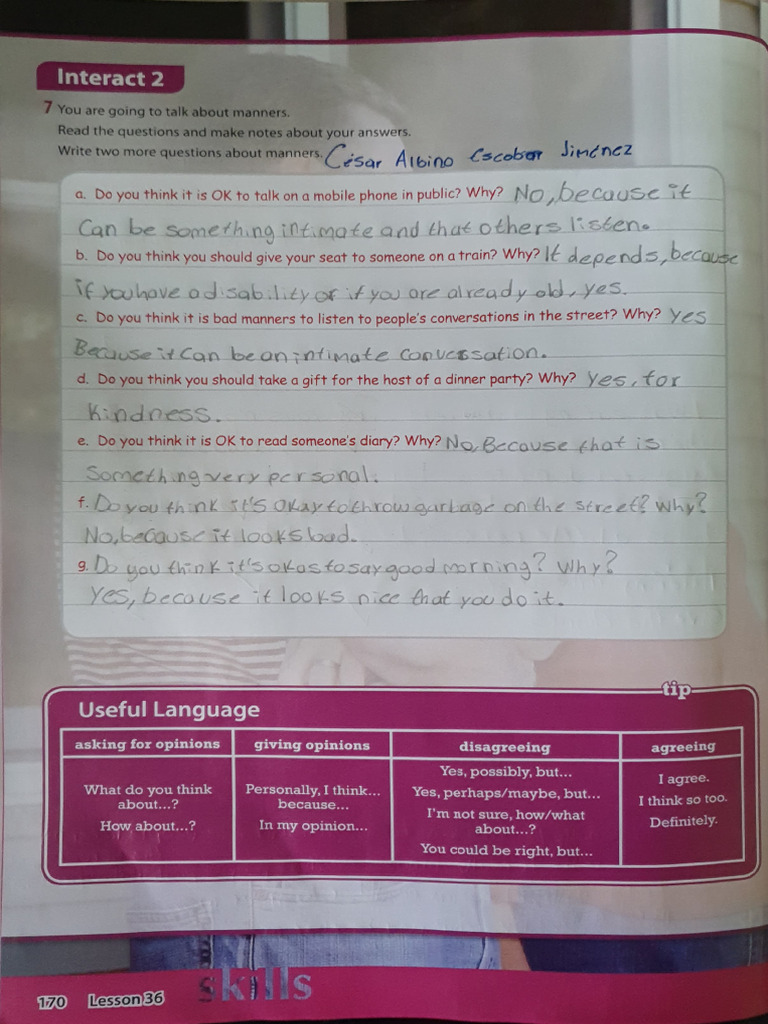 Interact 2
7 You are going to talk about manners.
Read the questions and make notes about your answers.
Write two more questions about manners. César Albino Escobar Jiménez
a. Do you think it is OK to talk on a mobile phone in public? Why? No, because it
Can be something intimate and that others listen.
b. Do you think you should give your seat to someone on a train? Why? It depends, because
if you have a disability or if you are already old, yes.
c. Do you think it is bad manners to listen to people's conversations in the street? Why? Yes
Because it Can be an intimate conversation.
d. Do you think you should take a gift for the host of a dinner party? Why? Yes, for
Kindness.
e. Do you think it is OK to read someone's diary? Why? No, Because that is
Something very personal.
f. Do you think it's Okay to throw garbage on the street? Why?
No, because it looks bad.
g. Do you think it's okas to say good morning? Why?
Yes, because it looks nice that you do it.
tip
Useful Language
asking for opinions giving opinions disagreeing agreeing
What do you think about...?
How about...?
Personally, I think... because...
In my opinion...
Yes, possibly, but...
Yes, perhaps/maybe, but...
I'm not sure, how/what about...?
You could be right, but...
I agree.
I think so too.
Definitely.
skills
170 Lesson 36